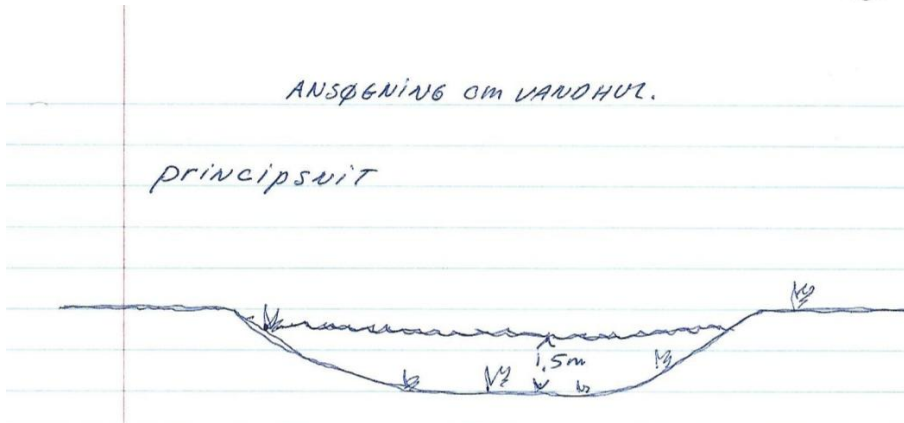 ANSØGNING om VANDHUL.
principsnit
1,5m